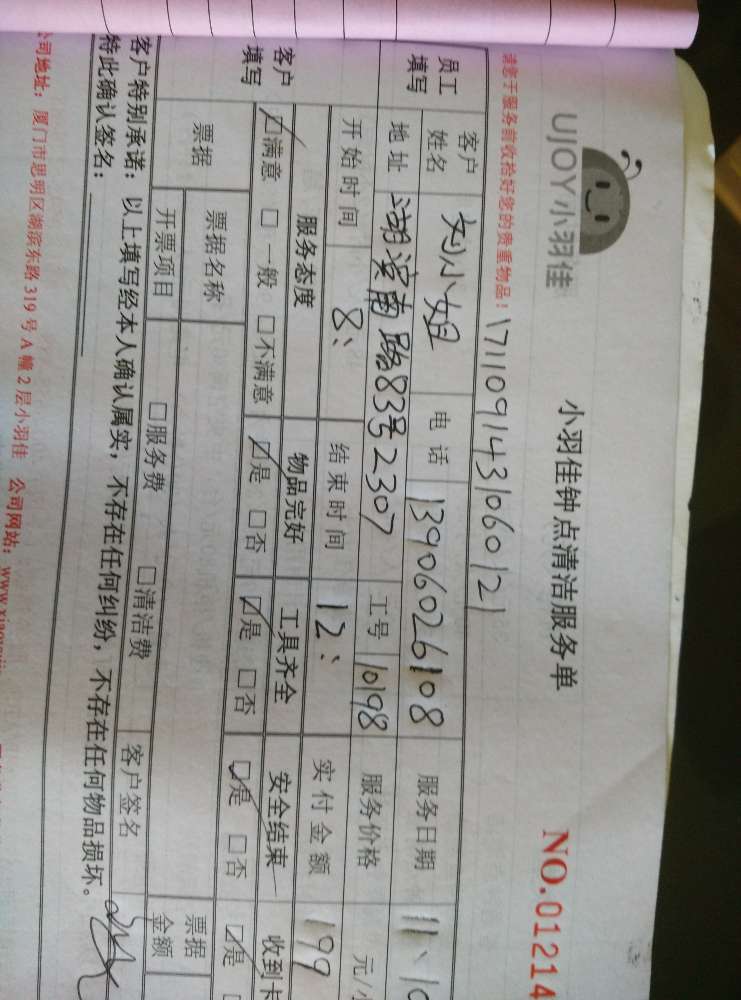 UJOY小羽佳
小羽佳钟点清洁服务单
NO.01214
请您于服务前收拾好您的贵重物品！
17110914310601​21
员工填写
客户姓名 刘小姐 电话 13906026108 服务日期 11、10
地址 湖滨南路83号2307 工号 10198 服务价格 元/小
开始时间 8： 结束时间 12： 实付金额 199
客户填写
服务态度 物品完好 工具齐全 安全结束 收到卡
☑满意 □一般 □不满意 ☑是 □否 ☑是 □否 ☑是 □否 ☑是
票据 票据名称 票据金额
开票项目 □服务费 □清洁费 客户签名
客户特别承诺：以上填写经本人确认属实，不存在任何纠纷，不存在任何物品损坏。
特此确认签名：
公司地址：厦门市思明区湖滨东路319号A幢2层小羽佳 公司网站：